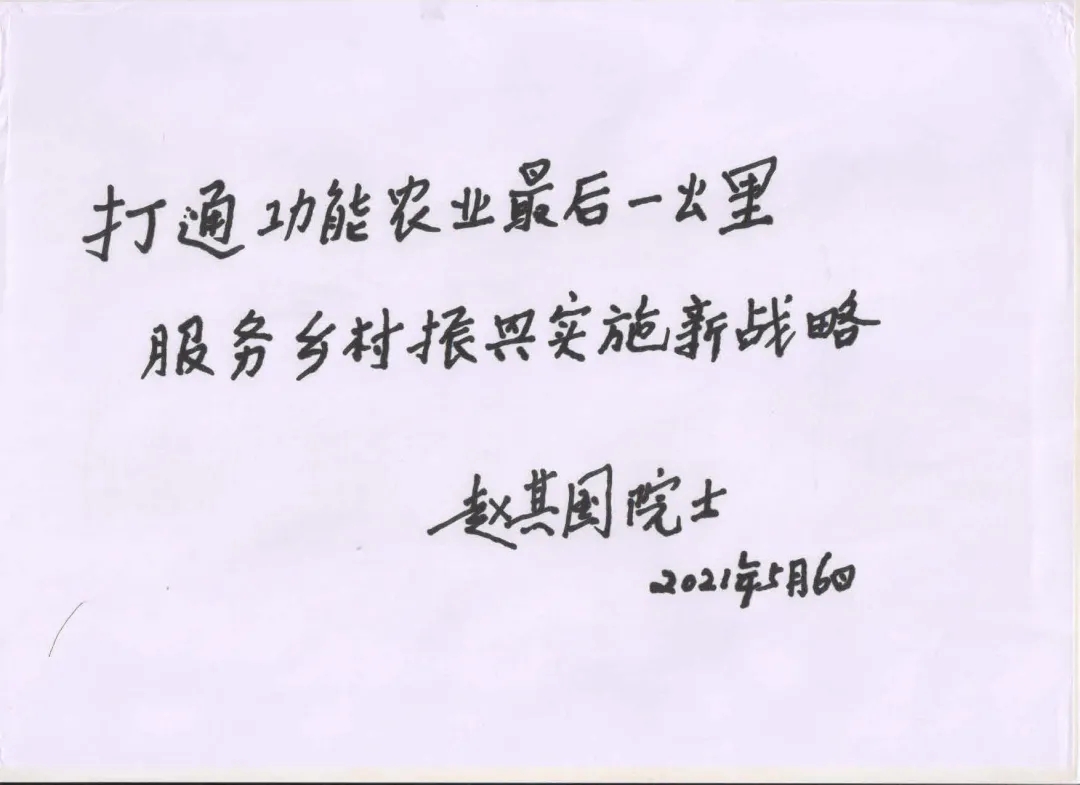 打通功能农业最后一公里
服务乡村振兴实施新战略
赵其国院士
2021年5月6日